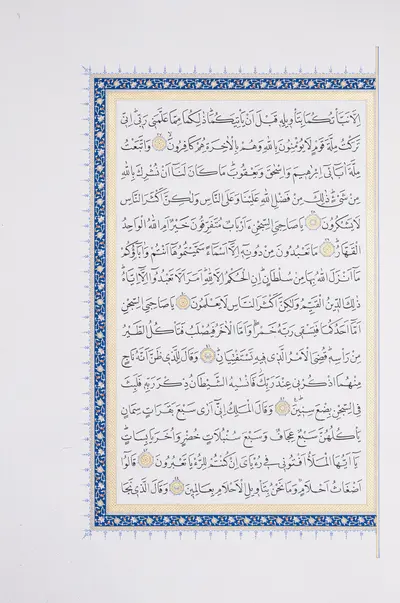 اِلَّا نَبَّأْتُكُمَا بِتَأْوِيلِهِ قَبْلَ اَنْ يَأْتِيَكُمَا ذٰلِكُمَا مِمَّا عَلَّمَنِي رَبِّي اِنِّي
تَرَكْتُ مِلَّةَ قَوْمٍ لَا يُؤْمِنُونَ بِاللّٰهِ وَهُمْ بِالْاٰخِرَةِ هُمْ كَافِرُونَ وَاتَّبَعْتُ
مِلَّةَ اٰبَائِي اِبْرٰهِيمَ وَاِسْحٰقَ وَيَعْقُوبَ مَا كَانَ لَنَا اَنْ نُشْرِكَ بِاللّٰهِ
مِنْ شَيْءٍ ذٰلِكَ مِنْ فَضْلِ اللّٰهِ عَلَيْنَا وَعَلَى النَّاسِ وَلٰكِنَّ اَكْثَرَ النَّاسِ
لَا يَشْكُرُونَ يَا صَاحِبَيِ السِّجْنِ ءَاَرْبَابٌ مُتَفَرِّقُونَ خَيْرٌ اَمِ اللّٰهُ الْوَاحِدُ
الْقَهَّارُ مَا تَعْبُدُونَ مِنْ دُونِهِ اِلَّا اَسْمَاءً سَمَّيْتُمُوهَا اَنْتُمْ وَاٰبَاؤُكُمْ
مَا اَنْزَلَ اللّٰهُ بِهَا مِنْ سُلْطَانٍ اِنِ الْحُكْمُ اِلَّا لِلّٰهِ اَمَرَ اَلَّا تَعْبُدُوا اِلَّا اِيَّاهُ
ذٰلِكَ الدِّينُ الْقَيِّمُ وَلٰكِنَّ اَكْثَرَ النَّاسِ لَا يَعْلَمُونَ يَا صَاحِبَيِ السِّجْنِ
اَمَّا اَحَدُكُمَا فَيَسْقِي رَبَّهُ خَمْرًا وَاَمَّا الْاٰخَرُ فَيُصْلَبُ فَتَأْكُلُ الطَّيْرُ
مِنْ رَأْسِهِ قُضِيَ الْاَمْرُ الَّذِي فِيهِ تَسْتَفْتِيَانِ وَقَالَ لِلَّذِي ظَنَّ اَنَّهُ نَاجٍ
مِنْهُمَا اذْكُرْنِي عِنْدَ رَبِّكَ فَاَنْسٰيهُ الشَّيْطَانُ ذِكْرَ رَبِّهِ فَلَبِثَ
فِي السِّجْنِ بِضْعَ سِنِينَ وَقَالَ الْمَلِكُ اِنِّي اَرٰى سَبْعَ بَقَرَاتٍ سِمَانٍ
يَأْكُلُهُنَّ سَبْعٌ عِجَافٌ وَسَبْعَ سُنْبُلَاتٍ خُضْرٍ وَاُخَرَ يَابِسَاتٍ
يَا اَيُّهَا الْمَلَأُ اَفْتُونِي فِي رُءْيَايَ اِنْ كُنْتُمْ لِلرُّءْيَا تَعْبُرُونَ قَالُوا
اَضْغَاثُ اَحْلَامٍ وَمَا نَحْنُ بِتَأْوِيلِ الْاَحْلَامِ بِعَالِمِينَ وَقَالَ الَّذِي نَجَا